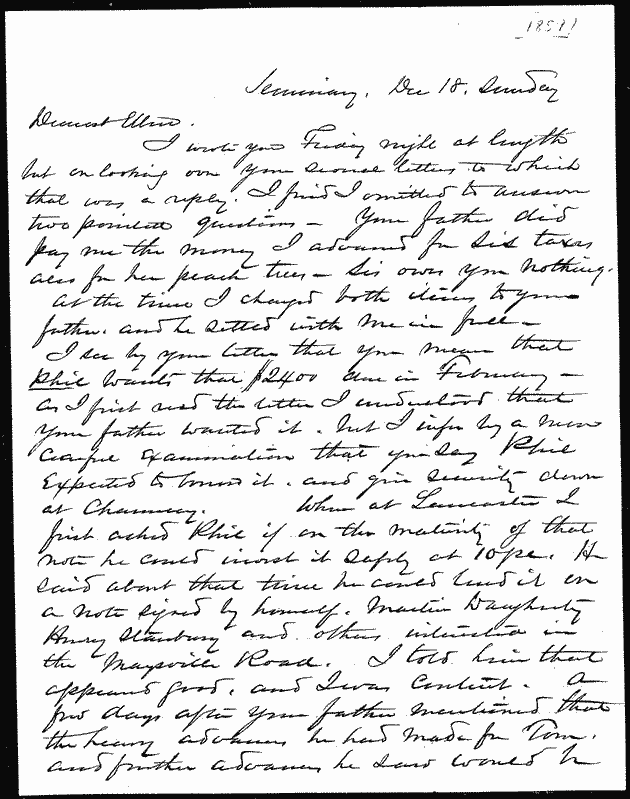 [1859]
Seminary, Dec 18. Sunday
Dearest Ellen.
I wrote you Friday night at length
but on looking over your several letters to which
that was a reply. I find I omitted to answer
two pointed questions - Your father did
pay me the money I advanced for Sis taxes
also for her peach trees - Sis owes you nothing.
At the time I charged both items to your
father. and he settled with me in full -
I see by your letter that you mean that
Phil wants that $2400 due in February -
as I first read the letter I understood that
your father wanted it. but I infer by a more
careful examination that you say Phil
expected to borrow it. and give security down
at Chauncey. When at Lancaster I
first asked Phil if on the maturity of that
note he could invest it safely at 10 pc. He
said about that time he could lend it on
a note signed by himself. Martin Daugherty
Henry Stanbery and others interested in
the Maysville Road. I told him that
appeared good. and I was content. A
few days after your father mentioned that
the heavy advances he had made for Tom.
and further advances he saw would be